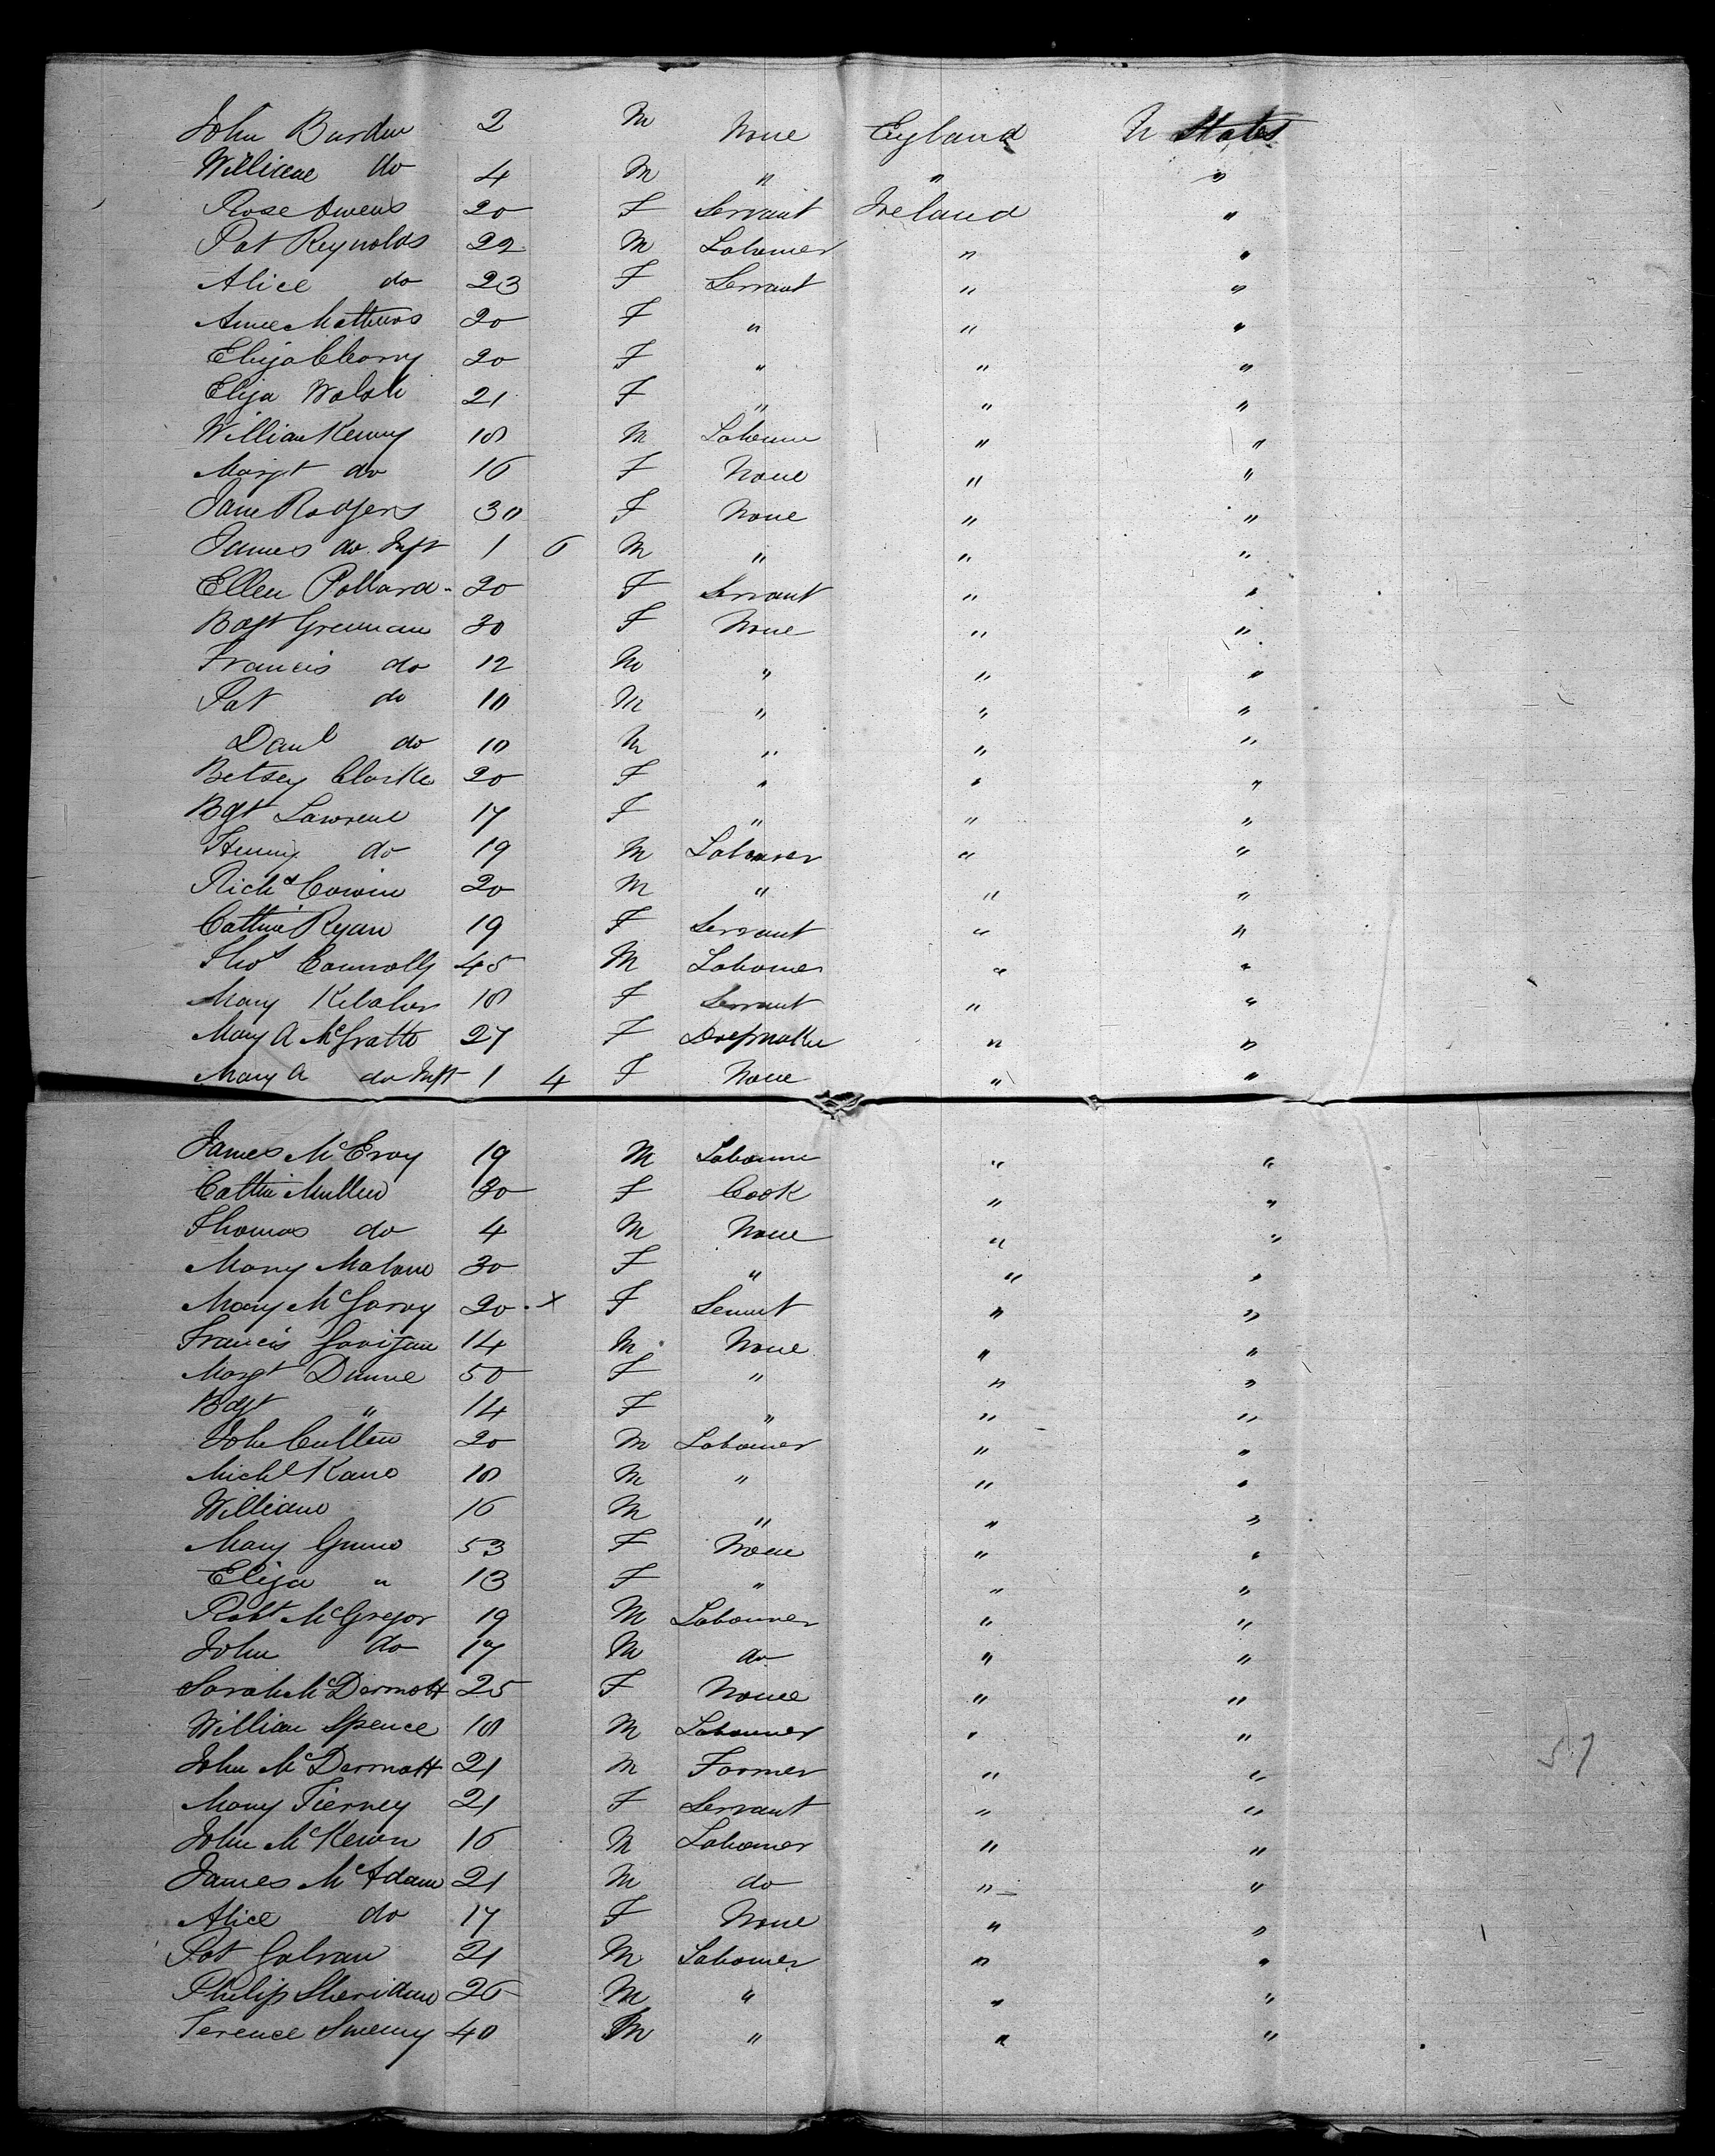 John Burden 2 M None England U States
William do 4 M " " "
Rose Owens 20 F Servant Ireland "
Pat Reynolds 22 M Labourer " "
Alice do 23 F Servant " "
Anne Mathews 20 F " " "
Eliza Cleary 20 F " " "
Eliza Walsh 21 F " " "
William Kenny 18 M Labourer " "
Margt do 16 F None " "
Jane Rodgers 30 F None " "
James do Inft 1 6 M " " "
Ellen Pollard 20 F Servant " "
Bgt Greenan 30 F None " "
Francis do 12 M " " "
Pat do 10 M " " "
Danl do 10 M " " "
Betsey Clarke 20 F " " "
Bgt Lawrence 17 F " " "
Henry do 19 M Labourer " "
Richd Corwin 20 M " " "
Cathne Ryan 19 F Servant " "
Thos Connolly 45 M Labourer " "
Mary 18 F Servant " "
Mary A McGrath 27 F Dressmaker " "
Mary A do Inft 1 4 F None " "
James McEvoy 19 M Labourer " "
Cathn Mullen 30 F Cook " "
Thomas do 4 M None " "
Mary Malone 30 F " " "
Mary McGarvy 20 x F Servant " "
Francis Gavigan 14 M None " "
Margt Dunne 50 F " " "
Bdgt " 14 F " " "
John Cullen 20 M Labourer " "
Michl Kane 18 M " " "
William 16 M " " "
Mary 53 F None " "
Eliza " 13 F " " "
Robt McGregor 19 M Labourer " "
John do 17 M do " "
Sarah McDermott 25 F None " "
William Spence 18 M Labourer " "
John McDermott 21 M Farmer " "
Mary Tierney 21 F Servant " "
John McKeown 16 M Labourer " "
James McAdam 21 M do " "
Alice do 17 F None " "
Pat Galvan 21 M Labourer " "
Philip Sheridan 26 M " " "
Terence Sweeny 40 M " " "
57